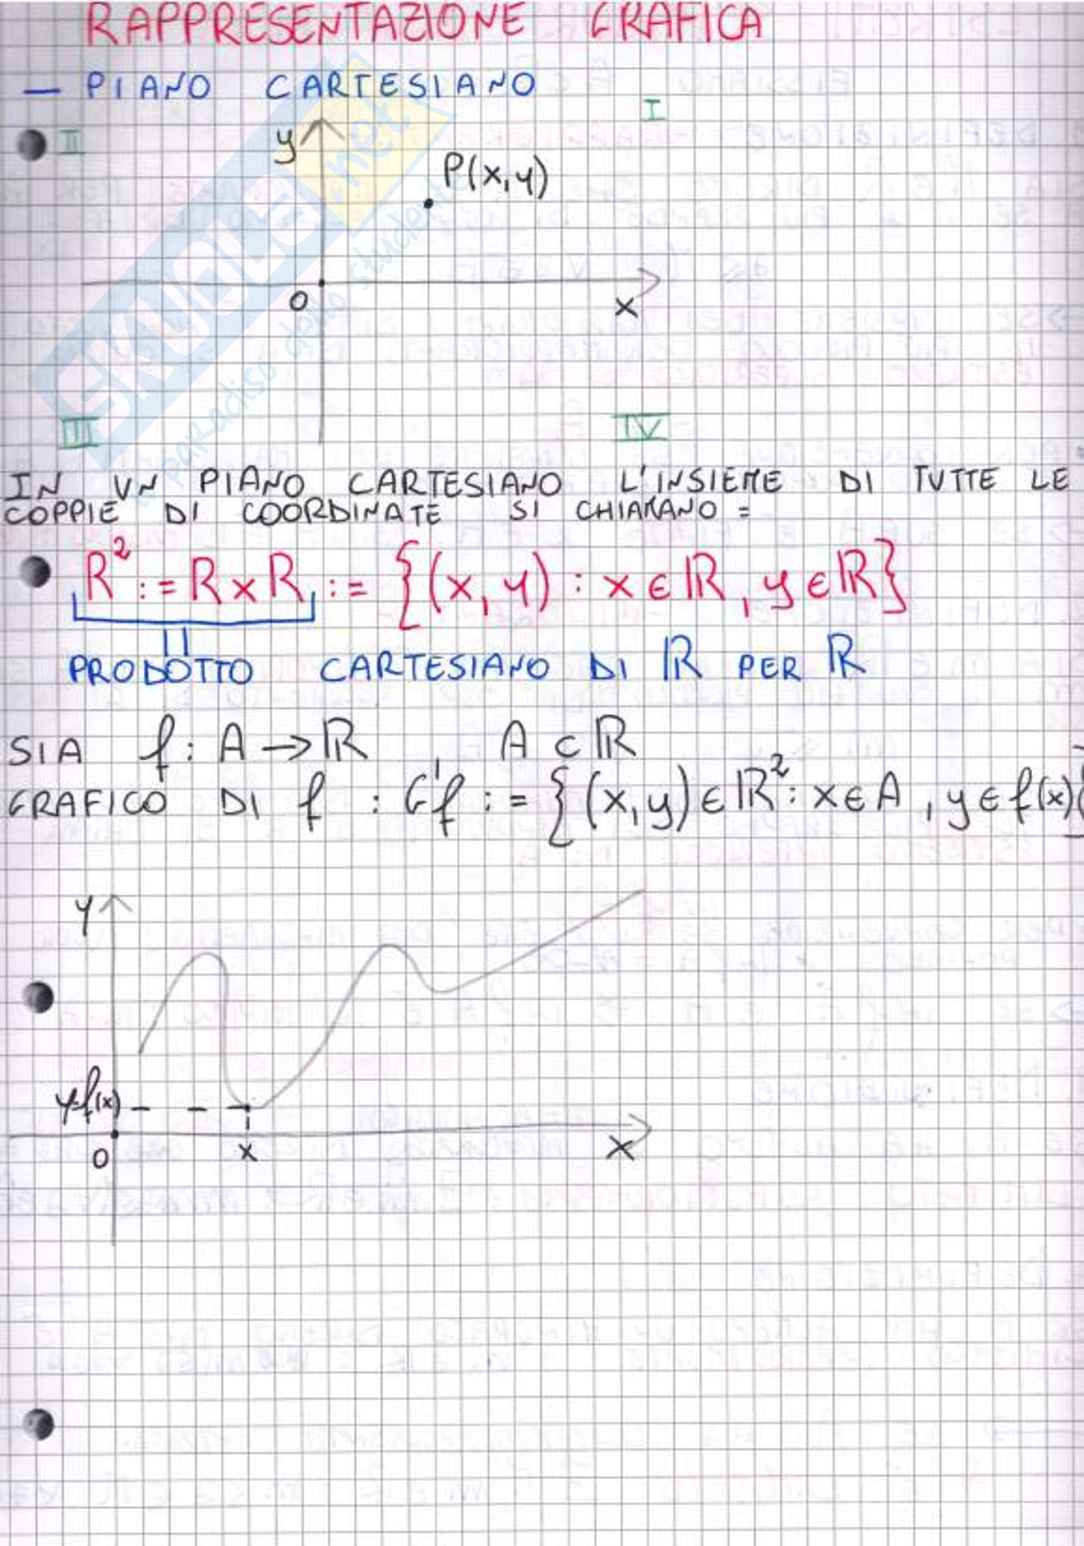 RAPPRESENTAZIONE GRAFICA
— PIANO CARTESIANO
I
II
y
P(x,y)
0
x
III
IV
SKUOLA.net
paradiso dello studente
IN UN PIANO CARTESIANO L'INSIEME DI TUTTE LE
COPPIE DI COORDINATE SI CHIAMANO =
R² := R x R := {(x, y) : x ∈ ℝ, y ∈ ℝ}
PRODOTTO CARTESIANO DI ℝ PER ℝ
SIA f: A → ℝ , A ⊂ ℝ
GRAFICO DI f : Gf := {(x,y) ∈ ℝ² : x ∈ A , y ∈ f(x)}
y
y=f(x)
0
x
x